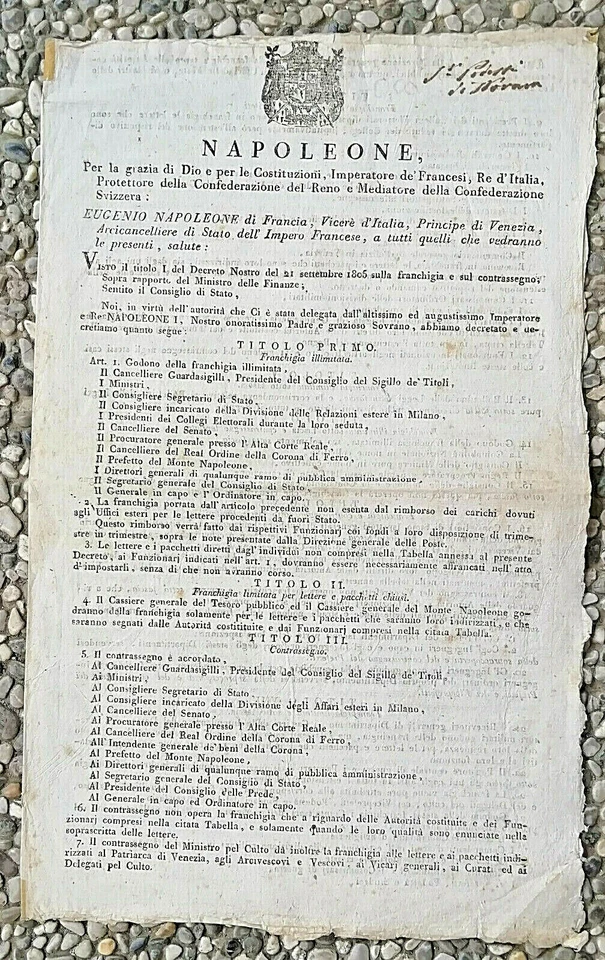 Sr. Podestà
di Novara
NAPOLEONE,
Per la grazia di Dio e per le Costituzioni, Imperatore de' Francesi, Re d'Italia,
Protettore della Confederazione del Reno e Mediatore della Confederazione
Svizzera:
EUGENIO NAPOLEONE di Francia, Vicerè d'Italia, Principe di Venezia,
Arcicancelliere di Stato dell'Impero Francese, a tutti quelli che vedranno
le presenti, salute:
VISTO il titolo I del Decreto Nostro del 21 settembre 1805 sulla franchigia e sul contrassegno;
Sopra rapporto del Ministro delle Finanze;
Sentito il Consiglio di Stato,
Noi, in virtù dell'autorità che Ci è stata delegata dall'altissimo ed augustissimo Imperatore
e Re NAPOLEONE I, Nostro onoratissimo Padre e grazioso Sovrano, abbiamo decretato e de-
cretiamo quanto segue:
TITOLO PRIMO.
Franchigia illimitata.
Art. 1. Godono della franchigia illimitata,
Il Cancelliere Guardasigilli, Presidente del Consiglio del Sigillo de' Titoli,
I Ministri,
Il Consigliere Segretario di Stato,
Il Consigliere incaricato della Divisione delle Relazioni estere in Milano,
I Presidenti dei Collegi Elettorali durante la loro seduta,
Il Cancelliere del Senato,
Il Procuratore generale presso l'Alta Corte Reale,
Il Cancelliere del Real Ordine della Corona di Ferro,
Il Prefetto del Monte Napoleone,
I Direttori generali di qualunque ramo di pubblica amministrazione,
Il Segretario generale del Consiglio di Stato,
Il Generale in capo e l'Ordinatore in capo.
2. La franchigia portata dall'articolo precedente non esenta dal rimborso dei carichi dovuti
agli Uffici esteri per le lettere procedenti da fuori Stato.
Questo rimborso verrà fatto dai rispettivi Funzionarj coi fondi a loro disposizione di trime-
stre in trimestre, sopra le note presentate dalla Direzione generale delle Poste.
3. Le lettere e i pacchetti diretti dagl'individui non compresi nella Tabella annessa al presente
Decreto, ai Funzionarj indicati nell'art. 1, dovranno essere necessariamente affrancati nell'atto
d'impostarli, senza di che non avranno corso.
TITOLO II.
Franchigia limitata per lettere e pacchetti chiusi.
4. Il Cassiere generale del Tesoro pubblico ed il Cassiere generale del Monte Napoleone go-
dranno della franchigia solamente per le lettere e i pacchetti che saranno loro indirizzati, e che
saranno segnati dalle Autorità costituite e dai Funzionarj compresi nella citata Tabella.
TITOLO III.
Contrassegno.
5. Il contrassegno è accordato,
Al Cancelliere Guardasigilli, Presidente del Consiglio del Sigillo de' Titoli,
Ai Ministri,
Al Consigliere Segretario di Stato,
Al Consigliere incaricato della Divisione degli Affari esteri in Milano,
Al Cancelliere del Senato,
Al Procuratore generale presso l'Alta Corte Reale,
Al Cancelliere del Real Ordine della Corona di Ferro,
All'Intendente generale de' beni della Corona,
Al Prefetto del Monte Napoleone,
Ai Direttori generali di qualunque ramo di pubblica amministrazione,
Al Segretario generale del Consiglio di Stato,
Al Presidente del Consiglio delle Prede,
Al Generale in capo ed Ordinatore in capo.
6. Il contrassegno non opera la franchigia che a riguardo delle Autorità costituite e dei Fun-
zionarj compresi nella citata Tabella, e solamente quando le loro qualità sono enunciate nella
soprascritta delle lettere.
7. Il contrassegno del Ministro pel Culto dà inoltre la franchigia alle lettere e ai pacchetti indi-
rizzati al Patriarca di Venezia, agli Arcivescovi e Vescovi, ai Vicarj generali, ai Curati ed ai
Delegati pel Culto.